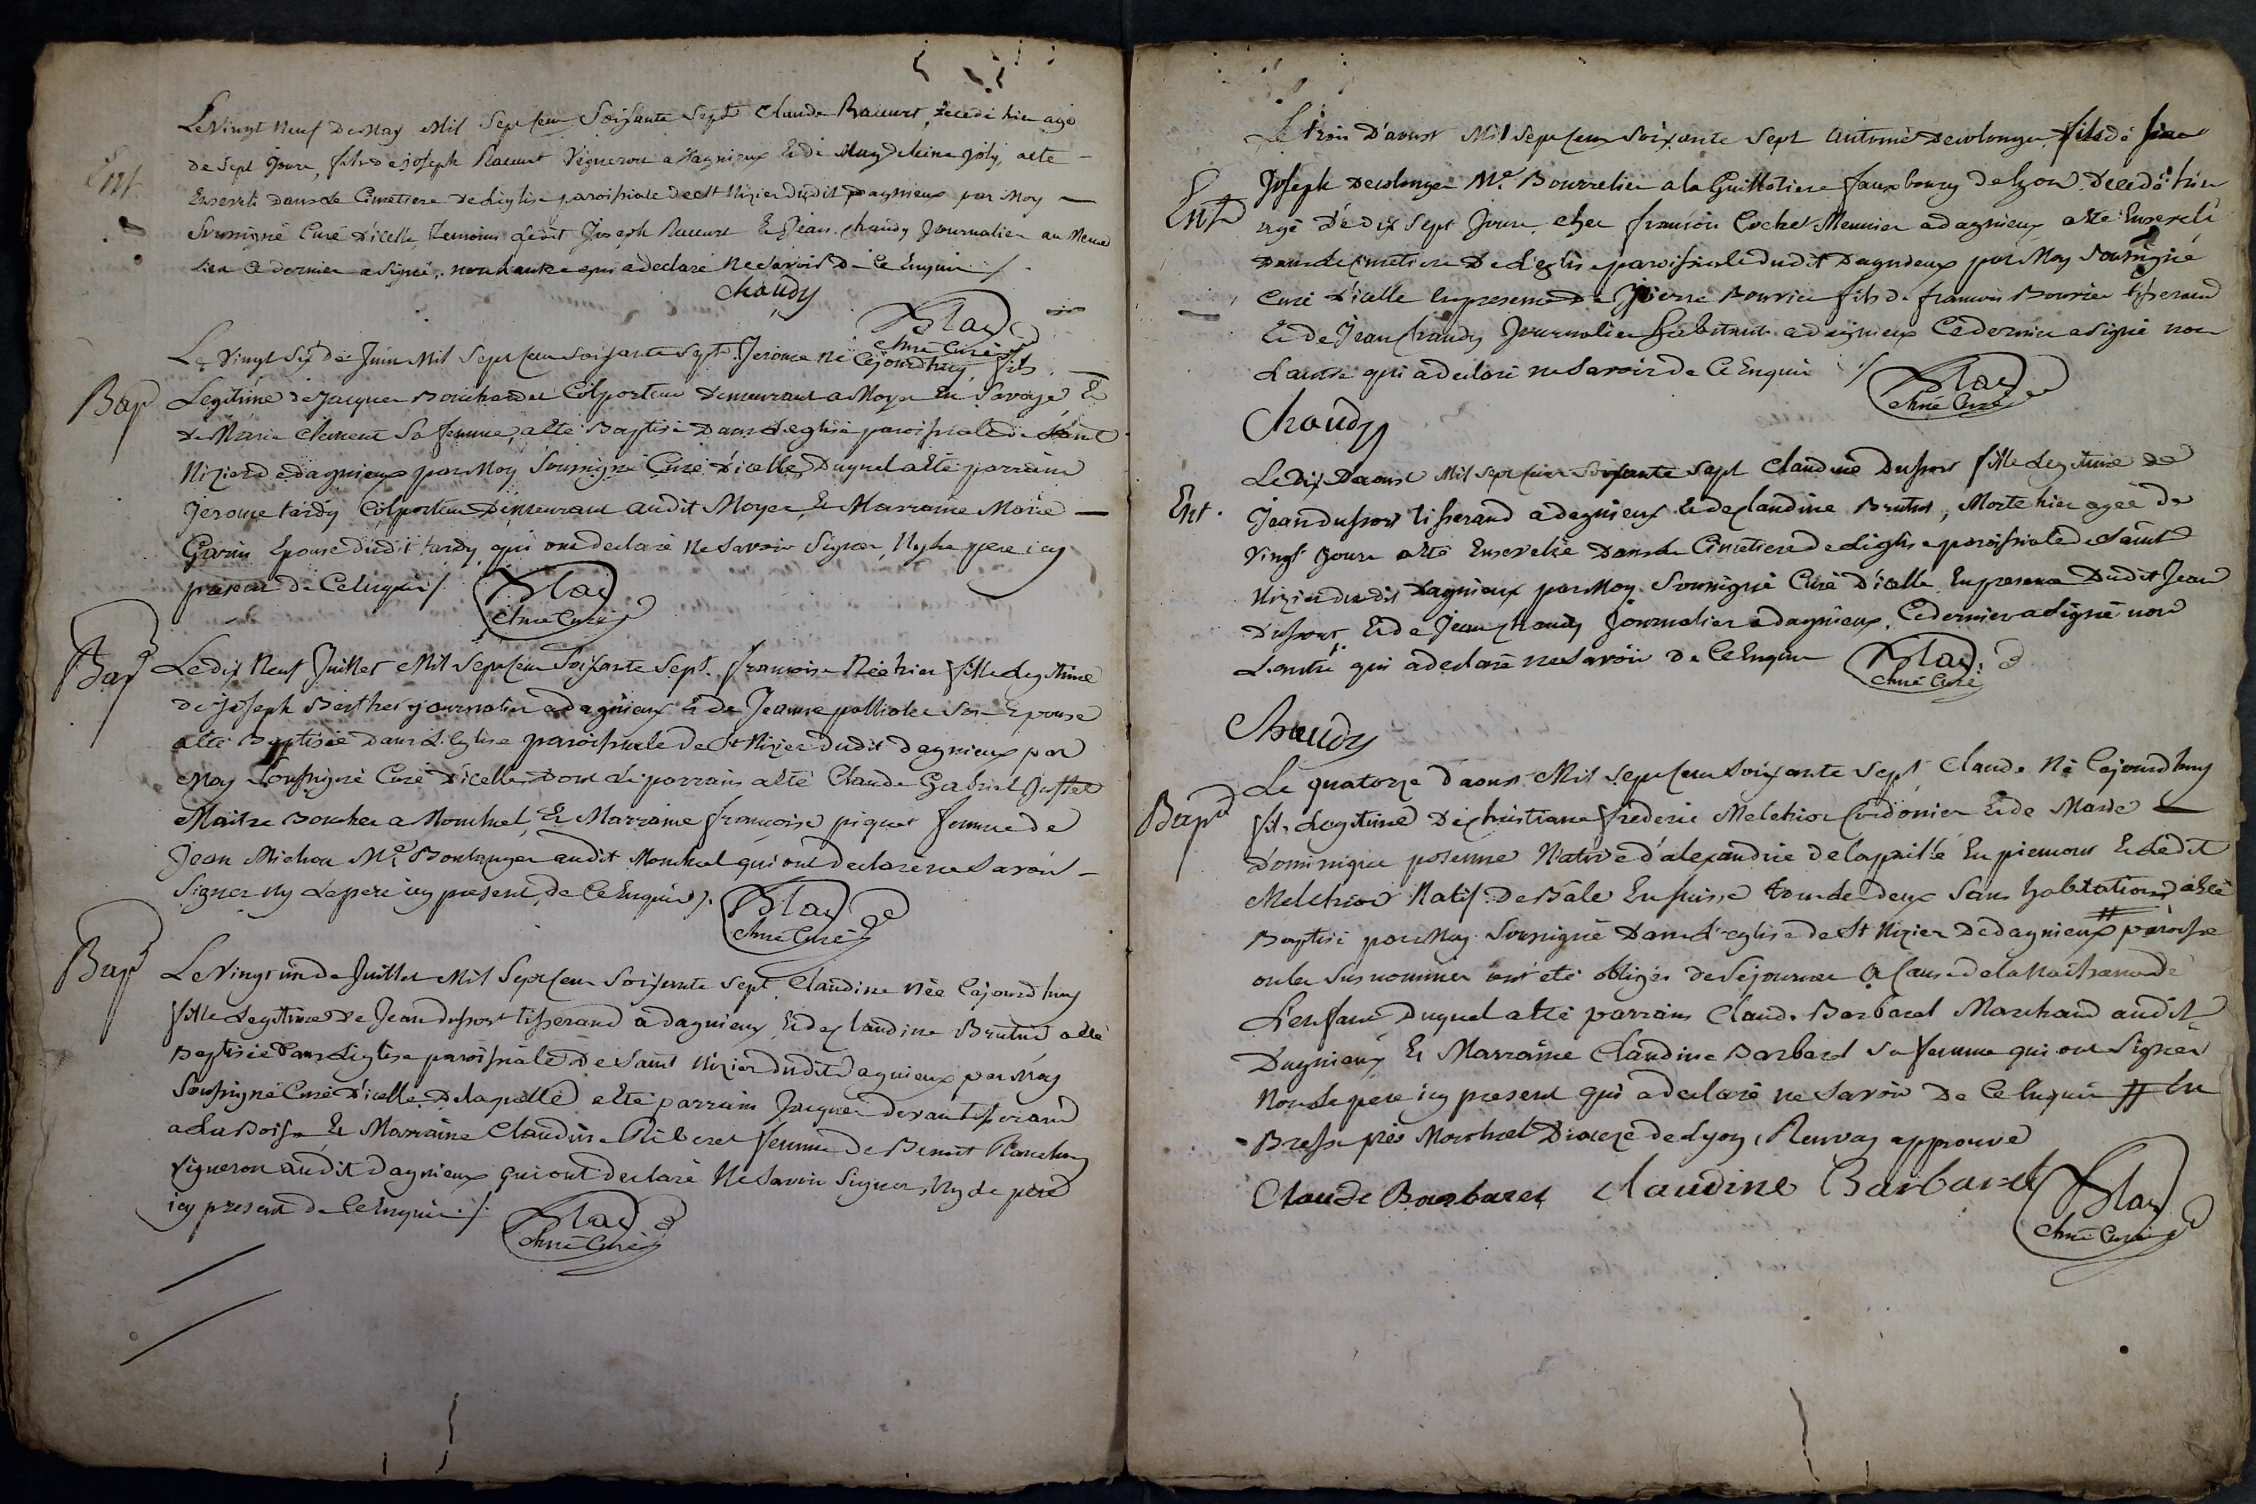 Le Vingt Neuf De May Mil Sept Cent Soixante Sept Claude Raccurt, decedé hier agé
Ent
de Sept Jours, fils de joseph Raccurt Vigneron a Dagnieux Et de Magdeleine joly, a eté
Enseveli dans le Cimetiere de Leglise paroissiale de St Nizier dudit Dagnieux par Moy
Soussigné Curé D'icelle, temoins Ledit Joseph Raccurt Et Jean Chaudy Journalier au Meme
Lieu Ce dernier a Signé, non Lautre qui a declaré Ne Savoir De Ce Enquis /.
Chaudy
Blay
Curé
Le Vingt Six de Juin Mil Sept Cent Soixante Sept Jerome né Cejourdhuy, fils
Bap
Legitime de Jacques Bouchardet Colporteur Demeurant a Moye En Savoye Et
de Marie Clement Sa femme, a eté Baptisé Dans L'eglise paroissiale de Saint
Nizier de dagnieux par Moy Soussigné Curé D'icelle, Duquel a eté parrain
Jerome tardy Colporteur Demeurant audit Moye, Et Marraine Marie
Garin Epouse dudit tardy qui ont declaré Ne Savoir Signer, Ny Le pere icy
present de Ce Enquis /.
Blay
Curé
Bap
Le dix Neuf Juillet Mil Sept Cent Soixante Sept, francoise Née hier fille Legitime
de Joseph Berthet journalier a dagnieux Et de Jeanne Son Epouse
a eté Baptisée dans L'Eglise paroissiale de St Nizier dudit dagnieux par
Moy Soussigné Curé D'icelle, Dont Le parrain a eté Claude Gabriel
Maitre Boucher a Montluel, Et Marraine francoise piquet femme de
Jean Michon Me Boulanger audit Montluel qui ont declaré ne Savoir
Signer Ny Le pere icy present, de Ce Enquis /.
Blay
Curé
Bap
Le Vingt un de Juillet Mil Sept Cent Soixante Sept Claudine Née Cejourdhuy
fille Legitime De Jean dufour tisserand a dagnieux, Et de Claudine a eté
Baptisée Dans Leglise paroissiale De Saint Nizier dudit Dagnieux par Moy
Soussigné Curé D'icelle, De laquelle a eté parrain Jacques tisserand
a La Boisse Et Marraine Claudine femme De Benoit Planchy
Vigneron audit Dagnieux qui ont declaré Ne Savoir Signer, Ny Le pere
icy present de Ce Enquis /.
Blay
Curé
Le trois D'aoust Mil Sept Cent Soixante Sept Antoine Decolonge fils de
Ent
Joseph Decolonge Me Bourrelier a la Guillotiere fauxbourg de Lyon, Decedé hier
agé De dix Sept Jours, chez francois Cochet Meunier a dagnieux a eté Enseveli
Dans Le Cimetiere De L'eglise paroissiale dudit Dagnieux par Moy Soussigné
Curé D'icelle En presence De Pierre Bouvier fils de francois Bouvier tisserand
Et de Jean Chaudy Journalier habitants a dagnieux Ce dernier a Signé non
Lautre qui a declaré ne Savoir de Ce Enquis /.
Blay
Curé
Chaudy
Le Dix D'aoust Mil Sept Cent Soixante Sept Claudine Dufour fille Legitime de
Ent.
Jean dufour tisserand a dagnieux Et de Claudine, Morte hier agée de
Vingt Jours a eté Ensevelie Dans Le Cimetiere de Leglise paroissiale de Saint
Nizier dudit Dagnieux par Moy Soussigné Curé D'icelle En presence Dudit Jean
Dufour Et de Jean Chaudy Journalier a dagnieux, Ce dernier a Signé non
L'autre qui a declaré ne Savoir De Ce Enquis
Blay
Curé
Chaudy
Le quatorze d'aoust Mil Sept Cent Soixante Sept Claude Né Cejourdhuy
Bap
fils Legitime De Christiane frederic Melchior Cordonier Et de Marie
Dominique Native d'alexandrie de la paille En piemont Et Ledit
Melchior Natif de Bale En Suisse tous les deux Sans habitation, a eté
Baptisé par Moy Soussigné Dans L'eglise de St Nizier De dagnieux # paroisse
ou les Susnommes ont eté obligés de Sejourner a Cause de la Naissance de
L'enfant Duquel a eté parrain Claude Barbaret Marchand audit
Dagnieux Et Marraine Claudine Barbaret Sa femme qui ont Signer
Non Le pere icy present qui a declaré ne Savoir De Ce Enquis # En
Bresse près Montluel Dioceze de Lyon, Renvoy approuvé
Claude Barbaret Claudine Barbaret
Blay
Curé